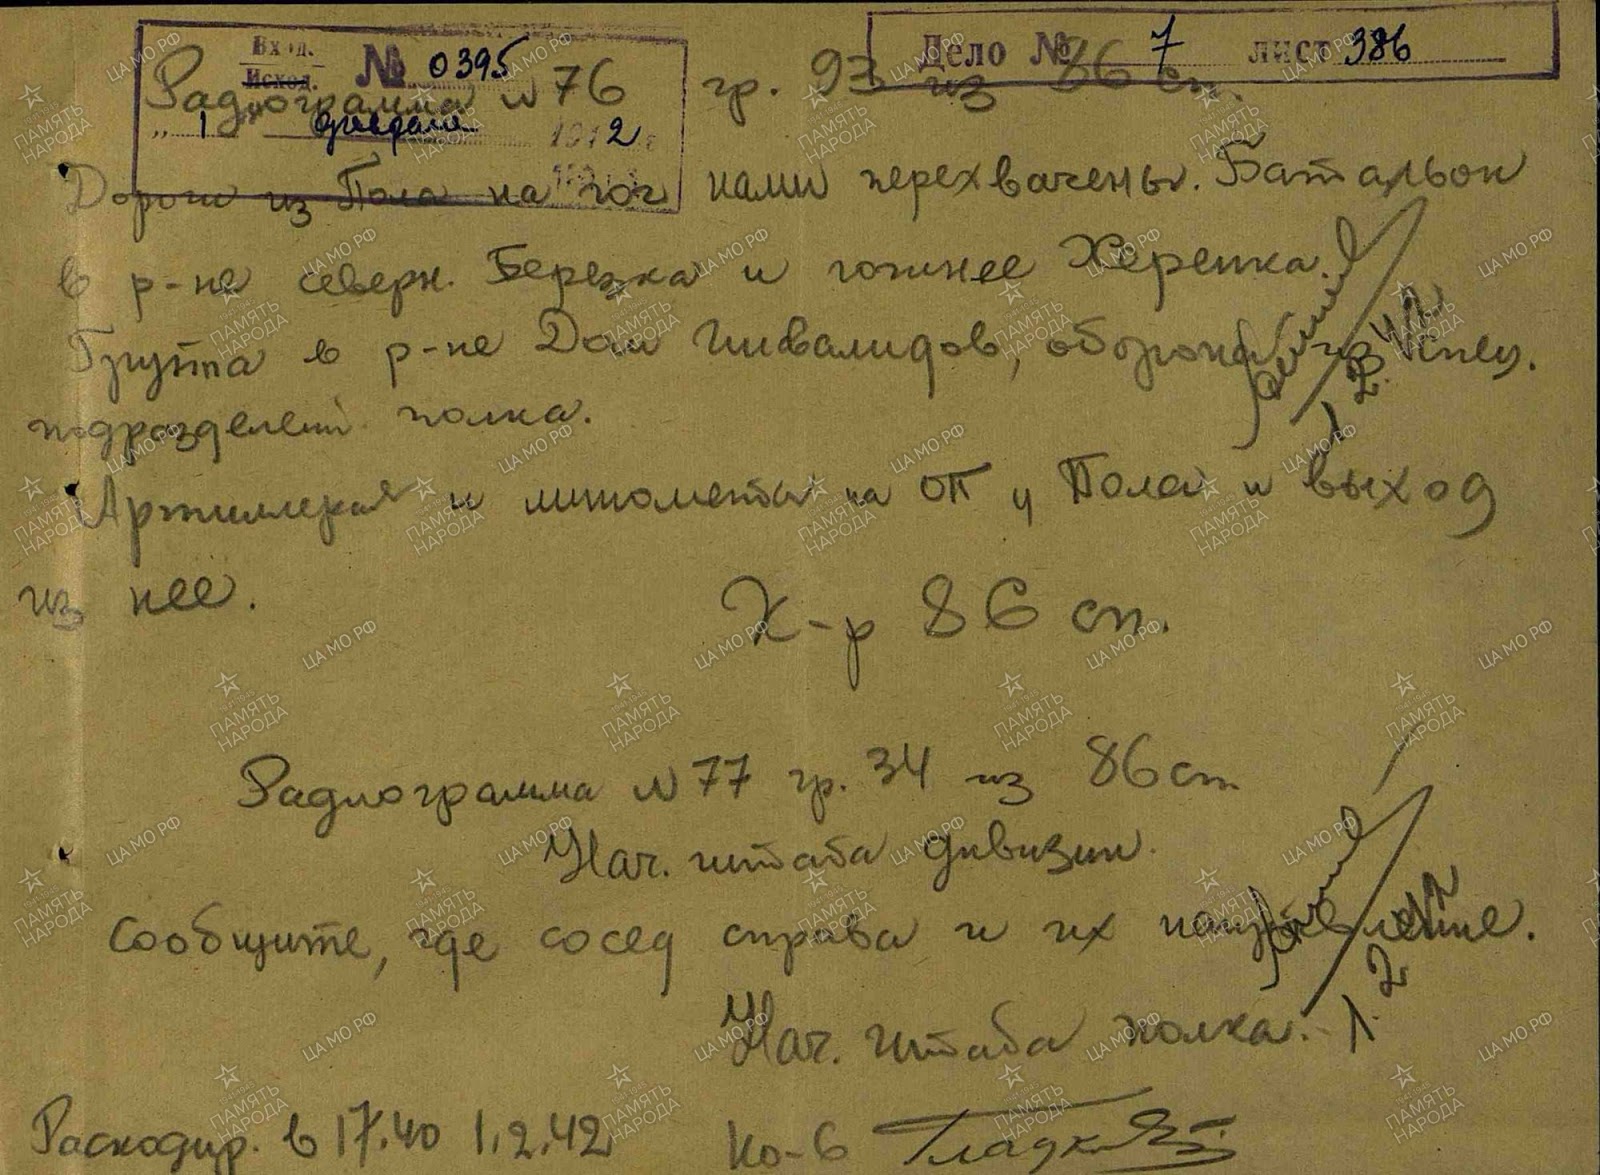 Вход. Исход. № 0395
Дело № 7 лист 386
Радиограмма № 76 гр. 93 из 86 сп.
"1" февраля 1942 г.
Дороги из Пола на юг нами перехвачены. Батальон
в р-не северн. Березка и южнее Херенка.
Группа в р-не Дом Инвалидов, оборона спец.
подразделен. полка.
Артиллерия и минометы на ОП у Пола и выход
из нее.
К-р 86 сп.
Радиограмма № 77 гр. 34 из 86 сп.
Нач. штаба дивизии.
Сообщите, где сосед справа и их направление.
Нач. штаба полка.
Раскодир. в 17.40 1.2.42
ЦА МО РФ
ПАМЯТЬ НАРОДА